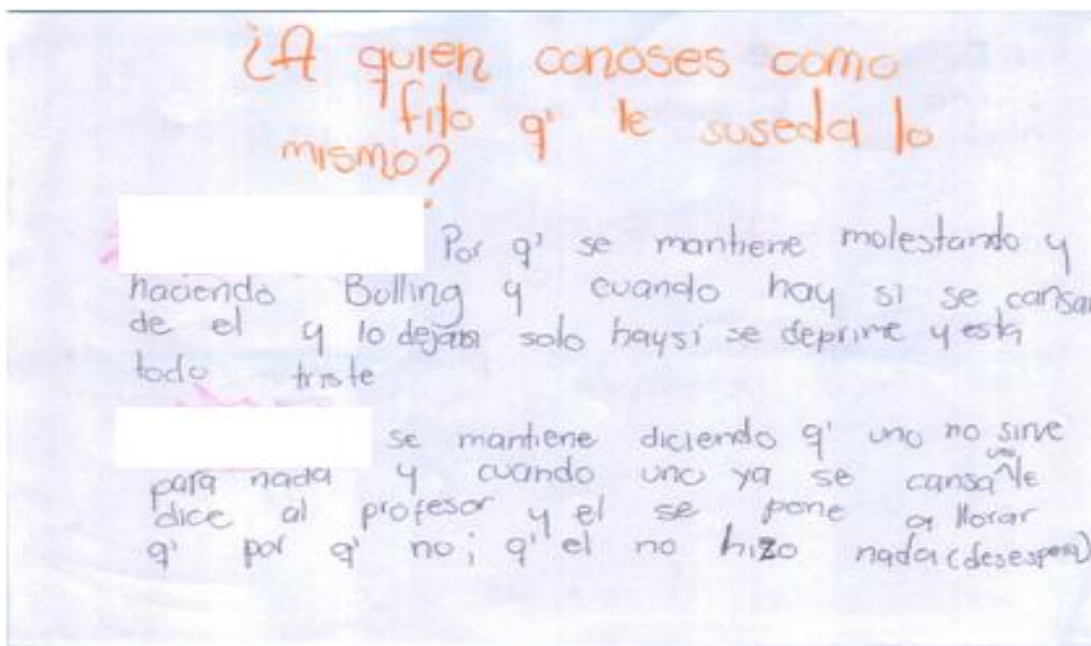 ¿A quien conoses como
fito q' le suseda lo
mismo?
Por q' se mantiene molestando y
haciendo Bulling y cuando hay si se cansan
de el y lo dejan solo haysi se deprime y esta
todo triste
se mantiene diciendo q' uno no sirve
para nada y cuando uno ya se cansa uno le
dice al profesor y el se pone a llorar
q' por q' no; q' el no hizo nada (desespera)